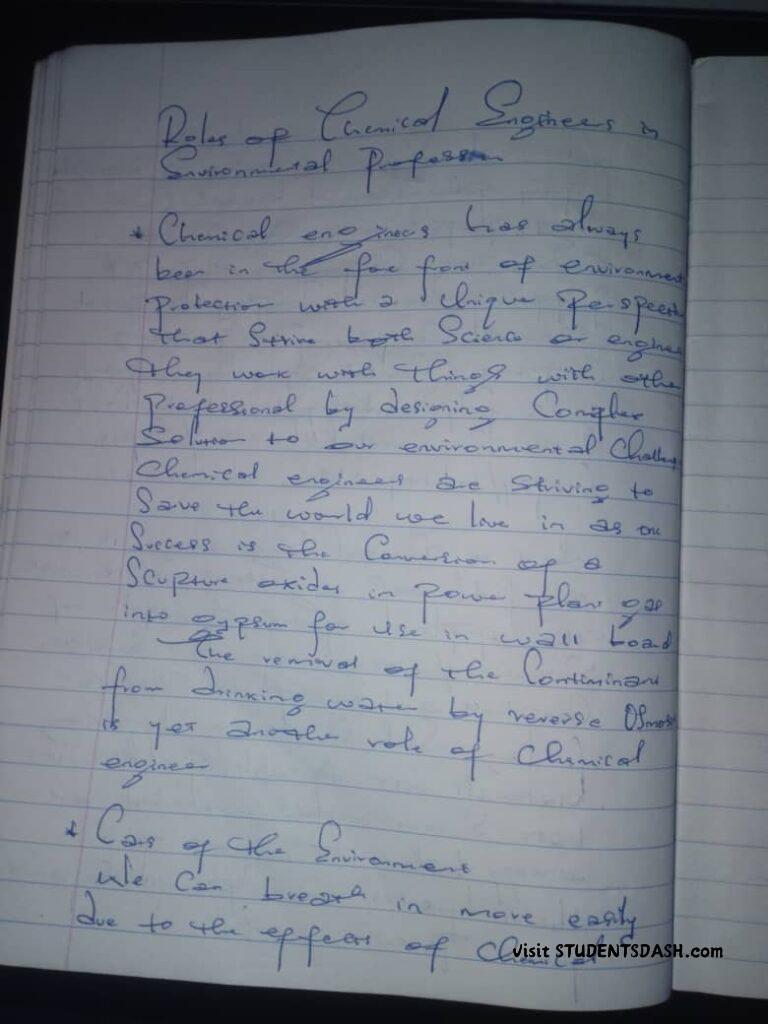 Roles of Chemical Engineers in
Environmental Profession
* Chemical engineers has always
been in the fore front of environment
Protection with a Unique Perspecti
that both Science or enginee
they work with things with other
Professional by designing Complex
Solution to our environmental Challeng
Chemical engineers are Striving to
Save the world we live in as one
Success is the Conversion of a
oxides in power plant gas
into gypsum for use in wall board
The removal of the Contiminant
from drinking water by reverse Osmosi
is yet another role of Chemical
engineer
* Care of the Environment
We Can breath in more easily
due to the effects of Chemical
Visit STUDENTSDASH.com